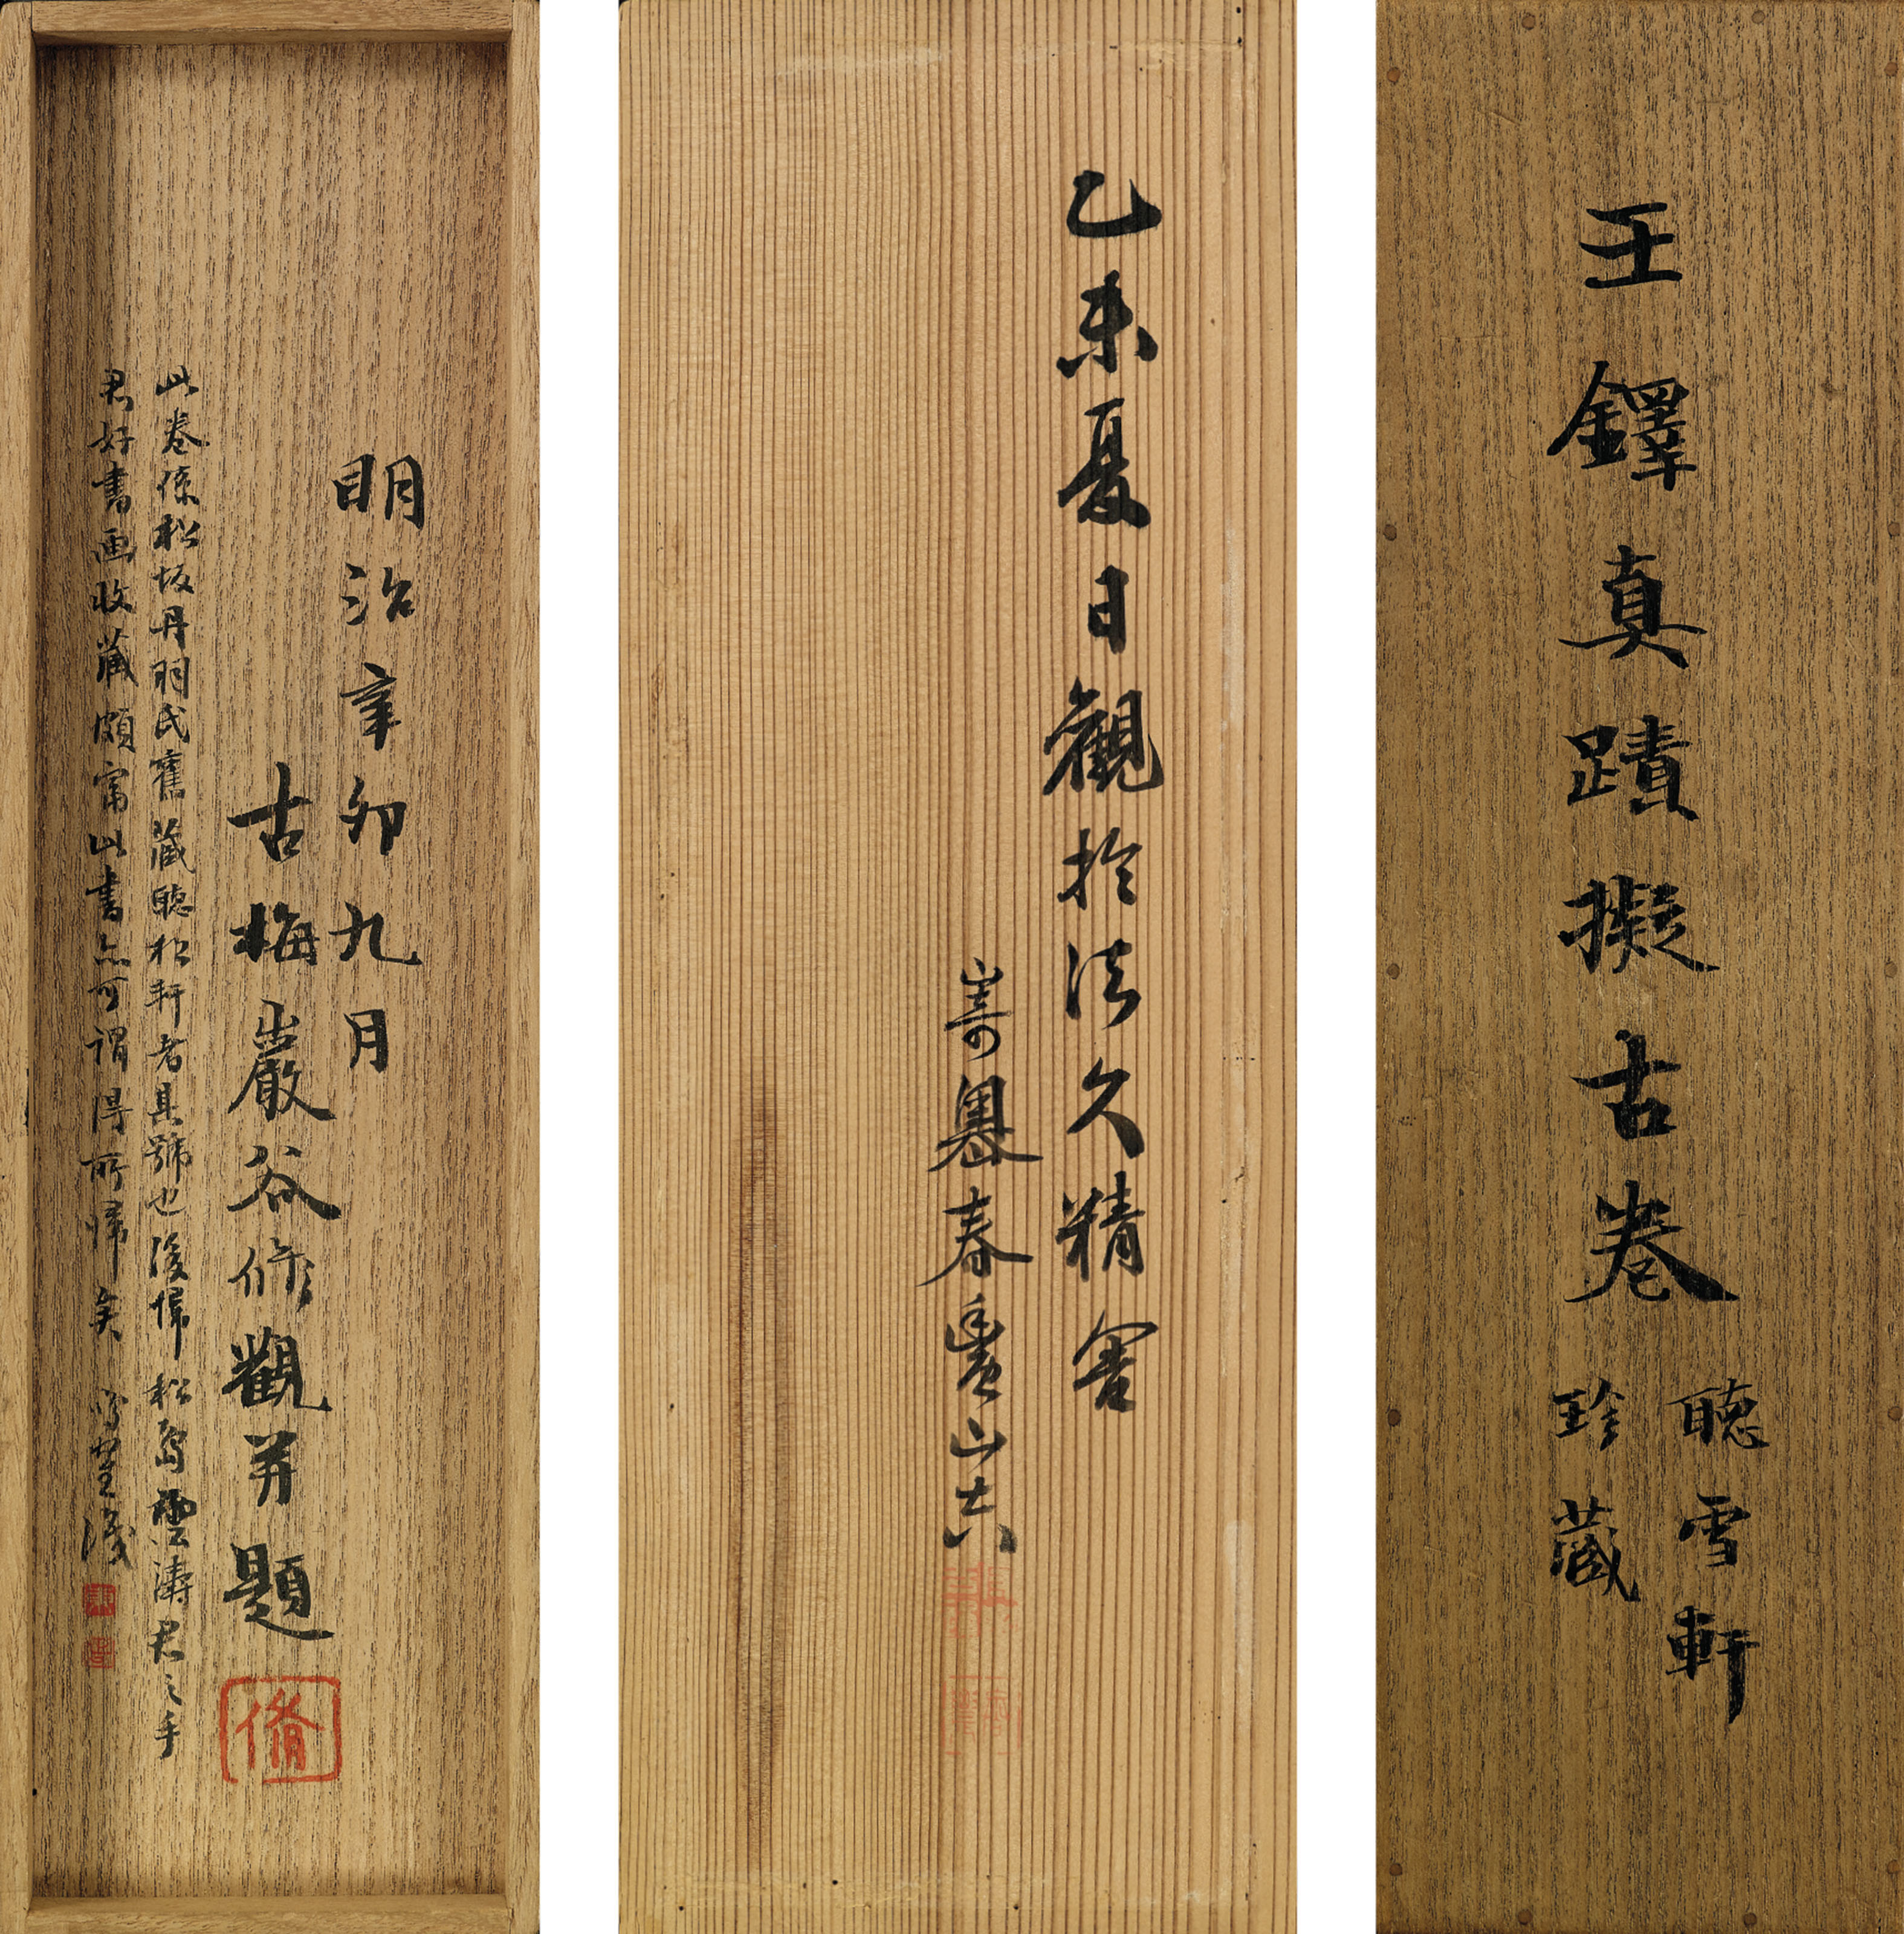 王鐸真蹟擬古卷
聴雪軒
珍藏
乙未夏日觀於法久精舍
春 山
明治辛卯九月
古梅巖谷修觀并題
此卷係松坂丹羽氏舊藏聴松軒者其號也後帰松島雲濤君之手
君好書画收藏頗富此書亦可謂得所帰矣 雪堂識
脩